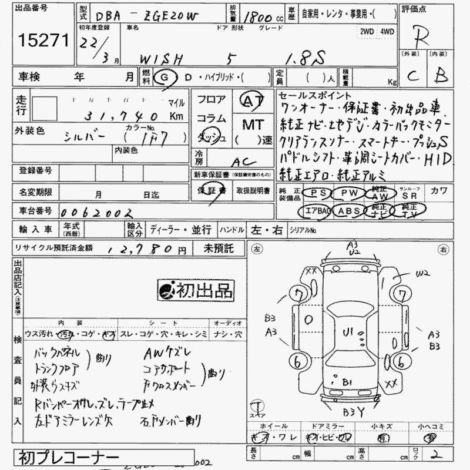 出品番号
15271
型式 DBA - ZGE20W
排気量 1800cc
車歴 自家用・レンタ・事業用・( )
評価点
R
C B
初年度登録 22/3月
ドア 形状 グレード
2WD 4WD
WISH 5 1.8S
車検 年 月
燃料 G D・ハイブリッド・( )
定員 ( )人
積載量 Kg
走行 31,740 Km マイル
フロア コラム ダッシュ
AT
MT ( )速
セールスポイント
ワンオーナー・保証書・初出品車
純正ナビ・地デジ・カラーバックモニター
クリアランスソナー・スマートキー・プッシュS
パドルシフト・革調シートカバー・HID
純正エアロ・純正アルミ
外装色 シルバー
カラーNo. (1F7)
冷房 AC
登録番号
新車保証書 保証書 取扱説明書
名変期限 月 日迄
純正装備品 PS PW 純正AW サンルーフSR カワ
エアBAG ABS 純正ナビ 純正TV
車台番号 0062002
輸入車 年式(西暦) 年 輸入区分 ディーラー・並行 ハンドル 左・右 シリアルNo.
リサイクル預託済金額 12,780円 未預託
出品店記入(注意事項)
初出品
左 右
A3
U2
XX
U2
7 7
B3
A3
U1
A3
B3
6 6
B1
XX
B3Y
T
スペア
検査員記入
内装 シート オーディオ
ウス汚れ・汚れ・コゲ・キズ スレ・コゲ・穴・キレ・シミ ナシ・穴
バックパネル
トランクフロア
曲り
AWケズレ
コアサポート
曲り
左ドアミラーレンズ欠
ホイール ドアミラー 小キズ 小ヘコミ
キズ・ワレ キズ・ヒビ
長さ cm 幅 cm 高さ cm ロック 2
初プレコーナー